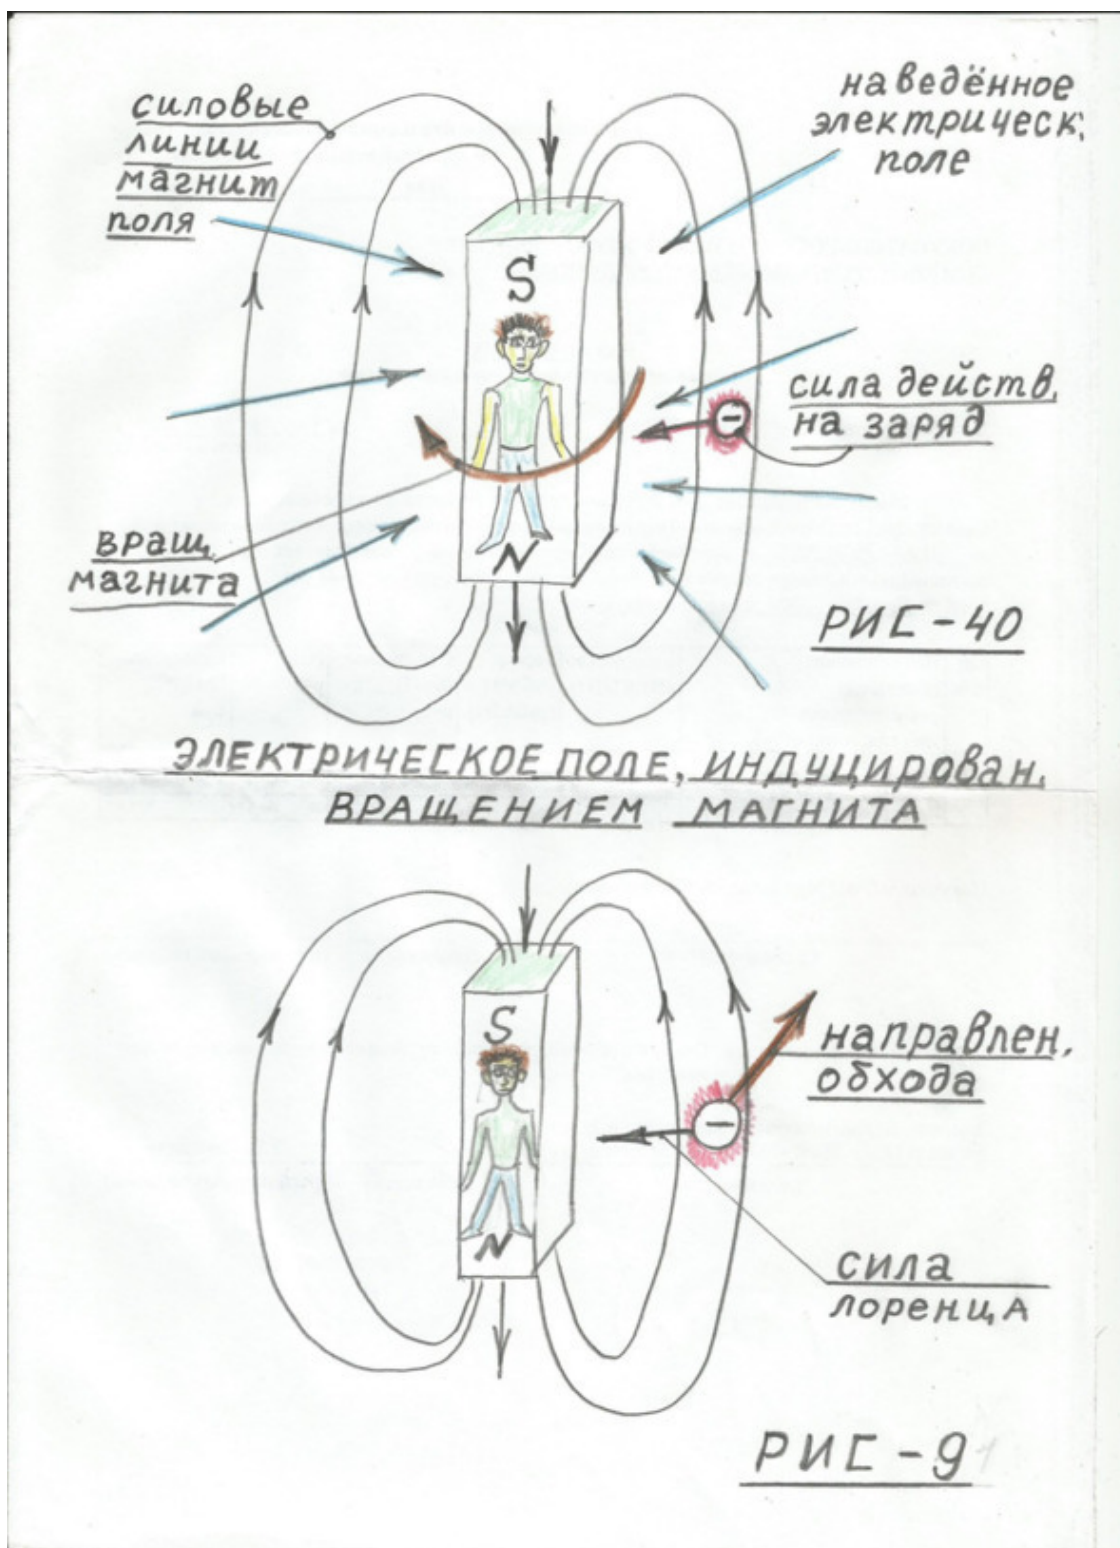 силовые
линии
магнит
поля
наведённое
электрическ.
поле
S
сила действ.
на заряд
−
вращ.
магнита
N
РИС-40
ЭЛЕКТРИЧЕСКОЕ ПОЛЕ, ИНДУЦИРОВАН.
ВРАЩЕНИЕМ МАГНИТА
S
направлен.
обхода
−
N
сила
лоренца
РИС-9